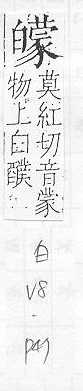 䑃
莫紅切音蒙
物上白醭
白
V8
P49